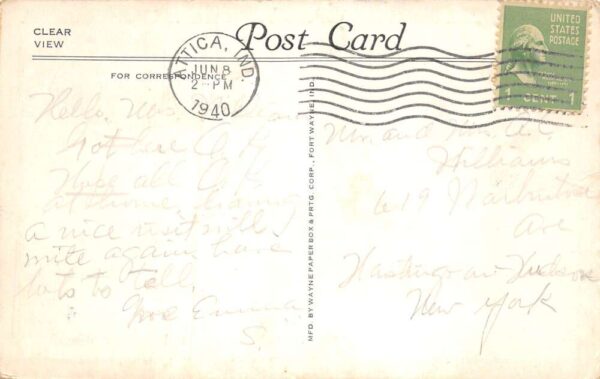 CLEAR
VIEW
Post Card
FOR CORRESPONDENCE
ATTICA, IND.
JUN 8
2 PM
1940
UNITED
STATES
POSTAGE
1 CENT 1
Hello, 
Got here O.K.
Hope all O.K.
at home, having
a nice visit will
write again have
lots to tell.
Emma
S.
MFD. BY WAYNE PAPER BOX & PRTG. CORP., FORT WAYNE, IND.
Mr. and Mrs.
Williams
619
Ave
Hastings on Hudson
New York